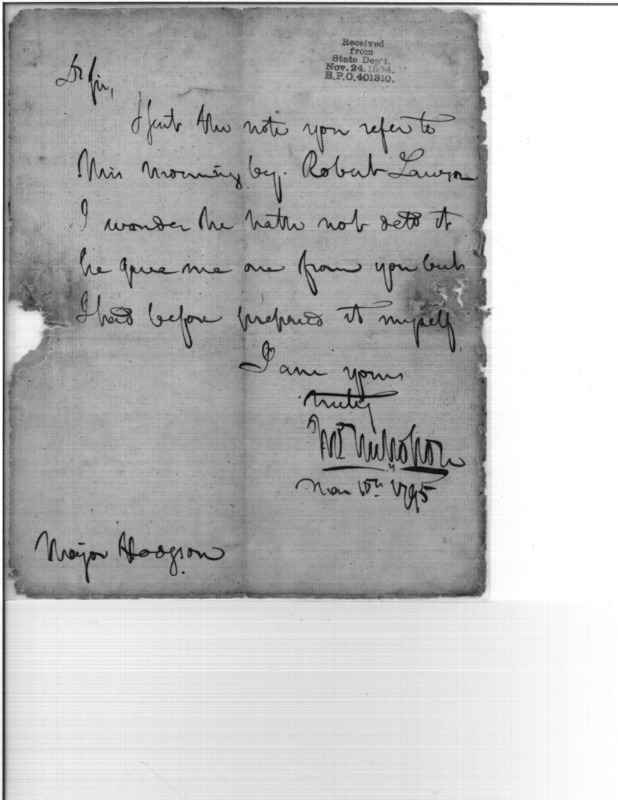 Received
from
State Dep't.
Nov. 24. 1894.
R.P.O. 401310.
Dr Sir,
I sent the note you refer to
this morning by Robert Lawson
I wonder he hath not detd it
he gave me one from you but
I had before prepared it myself
I am yours
truly
1795
Major Hodgson